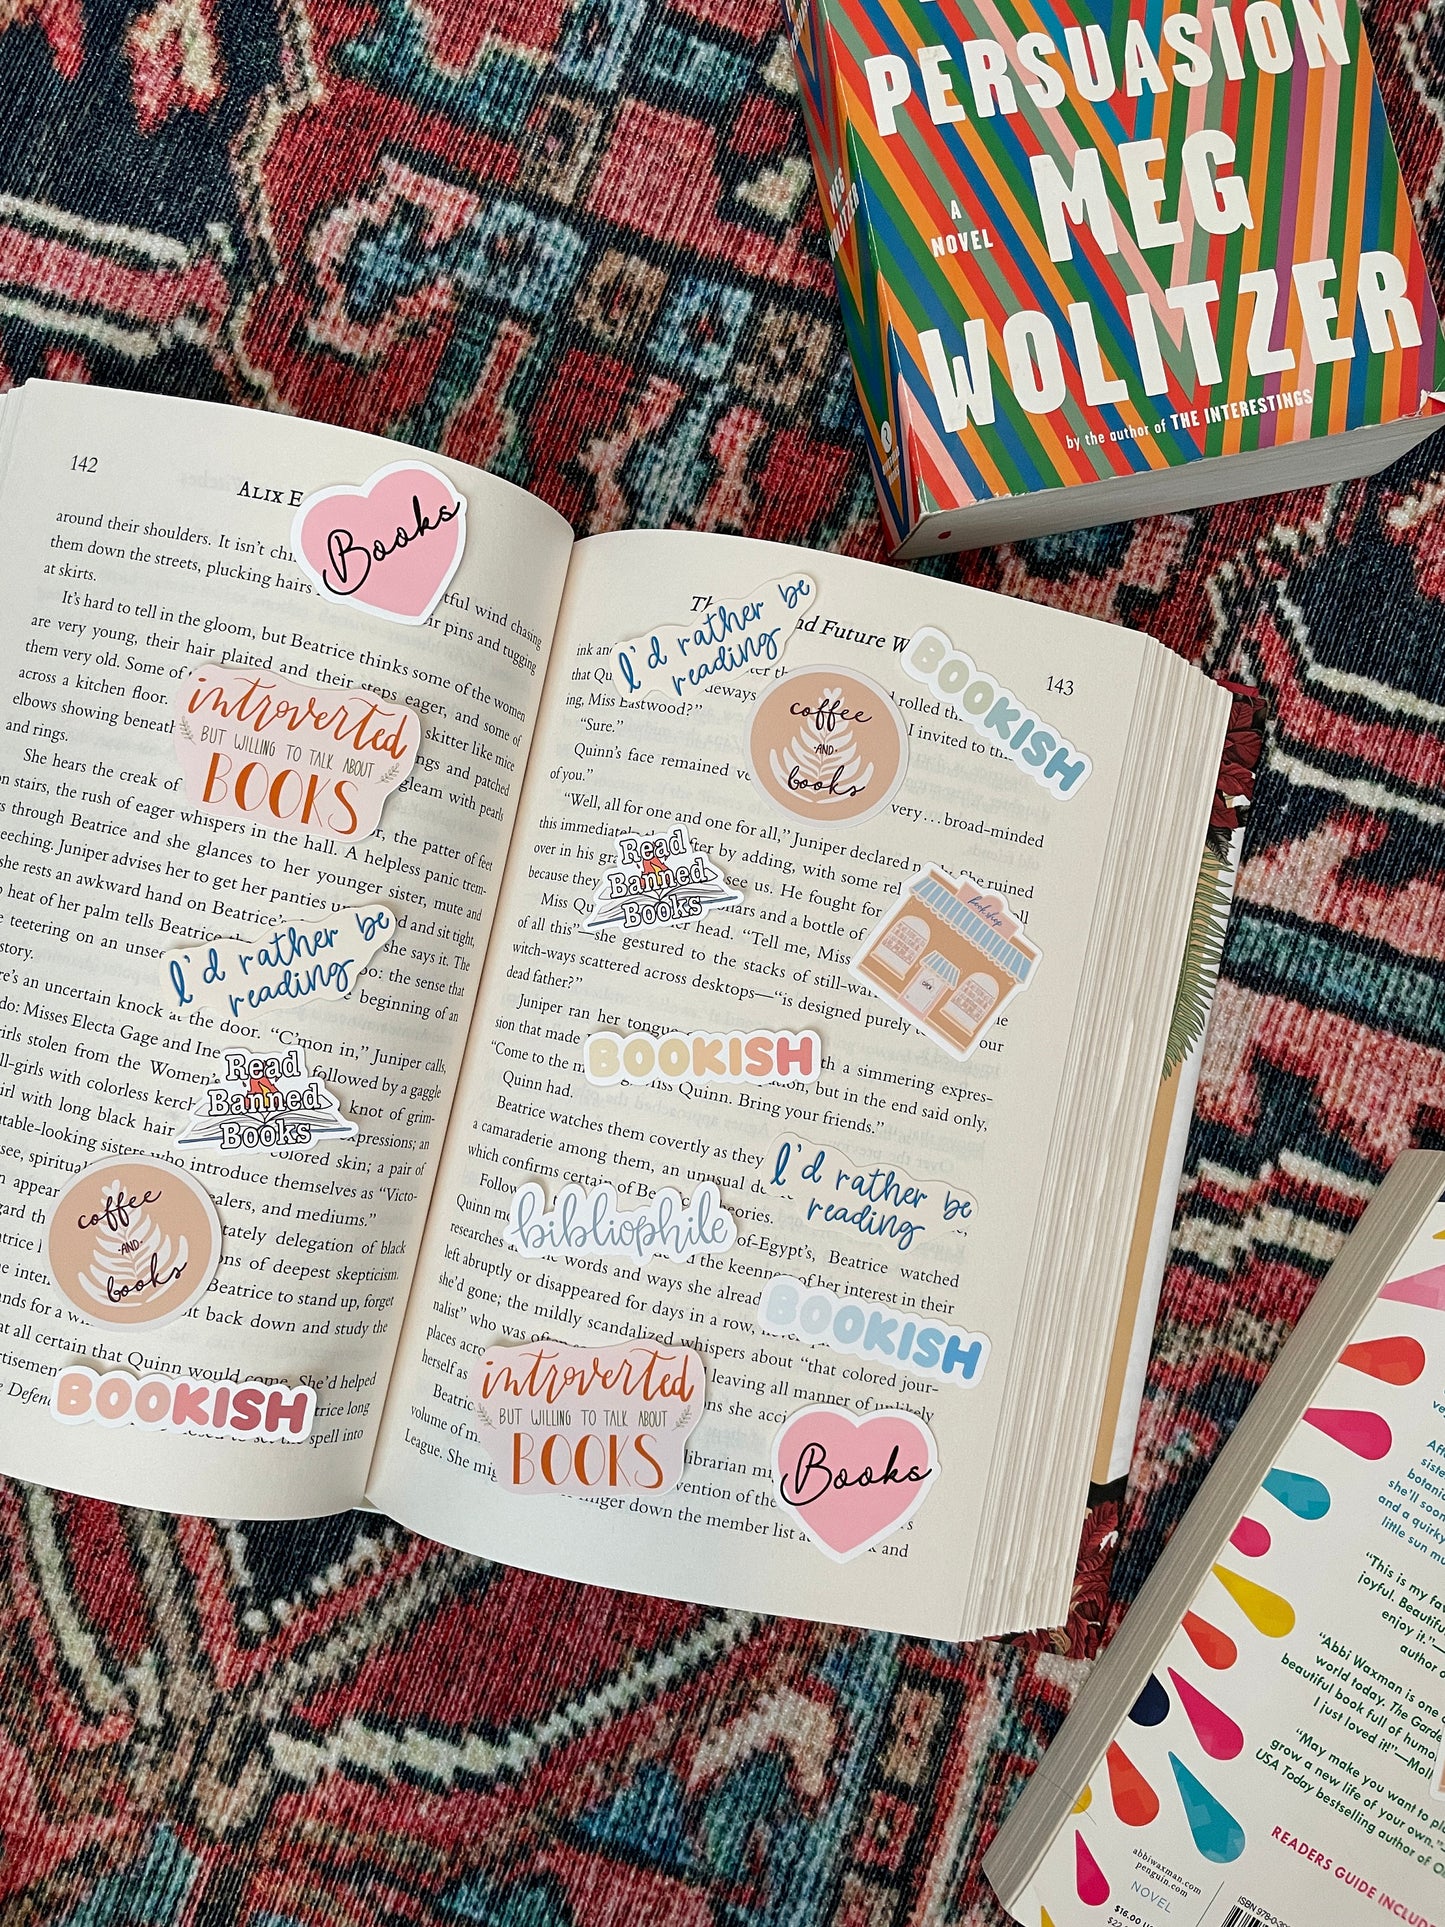 PERSUASION
MEG
WOLITZER
A
NOVEL
by the author of THE INTERESTINGS
MEG
WOLITZER
142
ALIX E
around their shoulders. It isn't
them down the streets, plucking hairs
tful wind chasing
ir pins and tugging
at skirts.
It's hard to tell in the gloom, but Beatrice thinks some of the women
are very young, their hair plaited and their steps eager, and some of
them very old. Some of
skitter like mice
across a kitchen floor.
ngs and patched
elbows showing beneath
gleam with pearls
and rings.
She hears the creak of
or, the patter of feet
on stairs, the rush of eager whispers in the hall. A helpless panic trem-
s through Beatrice and she glances to her younger sister, mute and
eeching. Juniper advises her to get her panties
d and sit tight,
she rests an awkward hand on Beatrice's
she says it. The
heat of her palm tells Beatrice
oo: the sense that
e teetering on an unsee
e beginning of an
story.
re's an uncertain knock at the door. "C'mon in," Juniper calls,
do: Misses Electa Gage and Ine
followed by a gaggle
girls stolen from the Women's
knot of grim-
ll-girls with colorless kerch
xpressions; an
irl with long black hair
colored skin; a pair of
utable-looking sisters who introduce themselves as "Victo-
see, spiritual
ealers, and mediums."
n appear
tately delegation of black
gard th
ons of deepest skepticism.
atrice
Beatrice to stand up, forget
inten
lt back down and study the
ands for a
at all certain that Quinn would come. She'd helped
rtisemen
trice long
e Defen
to set the spell into
Books
introverted
BUT WILLING TO TALK ABOUT
BOOKS
I'd rather be
reading
Read
Banned
Books
coffee
AND
books
BOOKISH
Th
nd Future W
143
ink and
that Qu
deways
ter th
rolled th
ing, Miss Eastwood?"
I invited to th
"Sure."
Quinn's face remained ve
very... broad-minded
of you."
"Well, all for one and one for all," Juniper declared
She ruined
this immediately
fter by adding, with some rel
over in his gra
see us. He fought for
because they
llars and a bottle of
Miss Qu
er head. "Tell me, Miss
of all this"—she gestured to the stacks of still-war
witch-ways scattered across desktops—"is designed purely
dead father?"
our
Juniper ran her tongue
h a simmering expres-
sion that made
tion, but in the end said only,
"Come to the m
Miss Quinn. Bring your friends."
Quinn had.
Beatrice watches them covertly as they
a camaraderie among them, an unusual
which confirms certain of Bea
eories.
Follow
Quinn m
of-Egypt's, Beatrice watched
researches
e words and ways she
d the keenness of her interest in their
left abruptly or disappeared for days in a row,
she'd gone; the mildly scandalized whispers about "that colored jour-
nalist" who was often
leaving all manner of unlikely
places acro
ns she acci
herself as
Beatric
librarian mi
volume of m
vention of the
League. She mig
finger down the member list a
k and
I'd rather be
reading
BOOKISH
coffee
AND
books
Read
Banned
Books
bookshop
OPEN
BOOKISH
I'd rather be
reading
bibliophile
BOOKISH
introverted
BUT WILLING TO TALK ABOUT
BOOKS
Books
ve
Aff
siste
botanic
she'll soon
and a quirky
little sun mu
"This is my fa
joyful. Beautifu
enjoy it."—
author o
"Abbi Waxman is one
world today. The Garde
beautiful book full of humo
I just loved it!"—Moll
"May make you want to pl
grow a new life of your own."
USA Today bestselling author of O
READERS GUIDE INCLU
abbiwaxman.com
penguin.com
NOVEL
$16.00 U
$22
ISBN 978-0-3